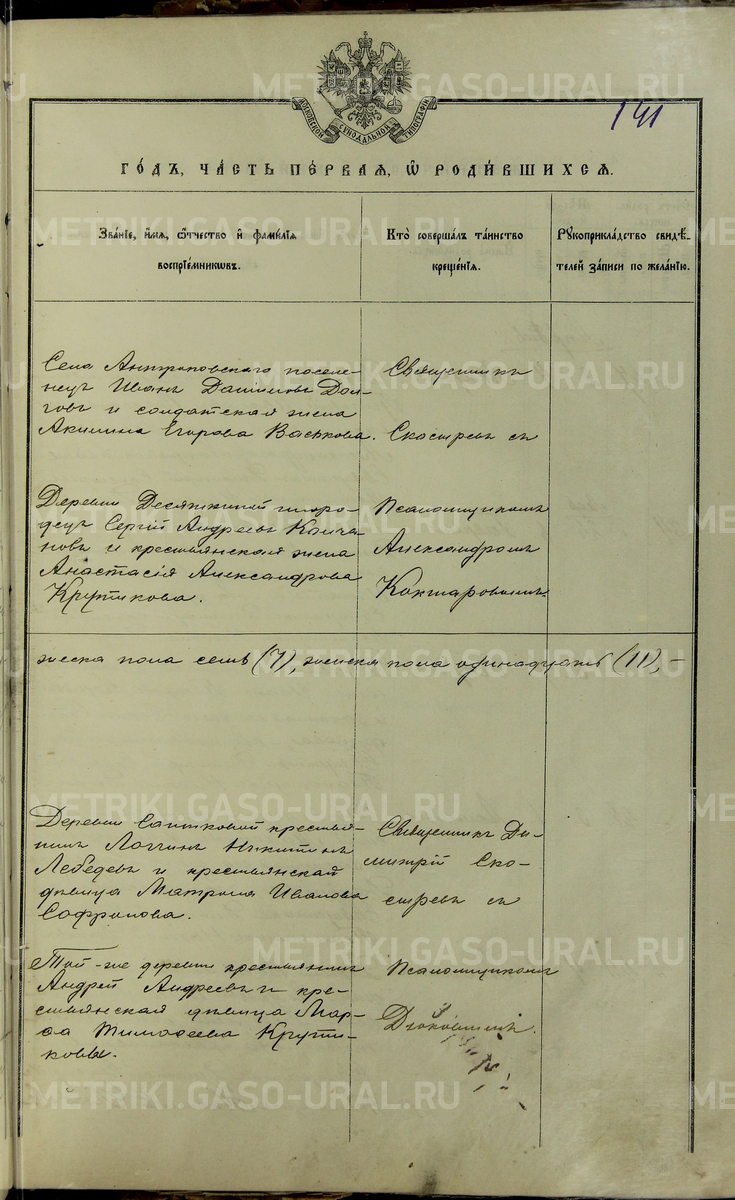 МОСКОВСКОЙ СѴНОДАЛЬНОЙ ТИПОГРАФІИ
141
ГО́ДЪ, ЧА́СТЬ ПЕ́РВАЯ, Ѽ РОДИ́ВШИХСЯ.
Зва́нїе, и҆́мя, ѻ҆́тчество и҆ фамѝлїя
воспрїе́мникѡвъ.
Кто̀ соверша́лъ та́инство
креще́нїя.
Рꙋкоприкла́дство свидѣ́-
телей за́писи по жела́нїю.
Села Антроповскаго поселе-
нецъ Иванъ Даниловъ Дол-
говъ и солдатская жена
Акилина Егорова Васькова.
Священникъ
Скостревъ съ
Деревни Десяткиной иноро-
децъ Сергій Андреевъ Колча-
новъ и крестьянская жена
Анастасія Александрова
Крутикова.
Псаломщикомъ
Александромъ
Кокшаровымъ
жеска пола семь (7), женска пола одинадцать (11), –
Деревни Саитковой крестья-
нинъ Логгинъ Никитинъ
Лебедевъ и крестьянская
дѣвица Матрона Иванова
Софронова.
Священникъ Ди-
митрій Ско-
стревъ съ
Той-же деревни крестьянинъ
Андрей Андреевъ и кре-
стьянская дѣвица Мар-
ѳа Тимоѳеева Крути-
кова.
Псаломщикомъ
METRIKI.GASO-URAL.RU